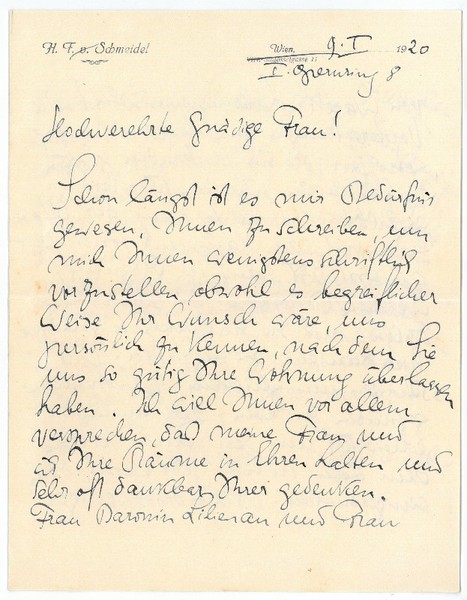 H. F. v. Schmeidel
Wien, 9. I 1920
I. Grenring 8
Hochverehrte Gnädige Frau!
Schon längst ist es mir Bedürfnis
gewesen, Ihnen zu schreiben, um
mich Ihnen wenigstens schriftlich
vorzustellen, obwohl es begreiflicher
Weise Ihr Wunsch wäre, uns
persönlich zu kennen, nach dem Sie
uns so gütig Ihre Wohnung überlassen
haben. Ich will Ihnen vor allem
versprechen, daß meine Frau und
ich Ihre Räume in Ehren halten und
sehr oft dankbar Ihrer gedenken.
Frau Baronin Lilienau und Frau